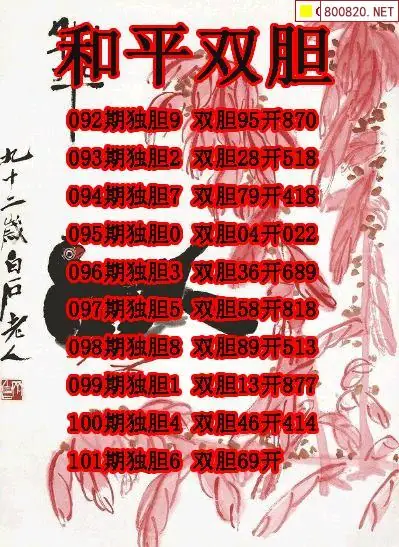 800820.NET
和平双胆
092期独胆9 双胆95开870
093期独胆2 双胆28开518
094期独胆7 双胆79开418
095期独胆0 双胆04开022
096期独胆3 双胆36开689
097期独胆5 双胆58开818
098期独胆8 双胆89开513
099期独胆1 双胆13开877
100期独胆4 双胆46开414
101期独胆6 双胆69开
九十二岁白石老人